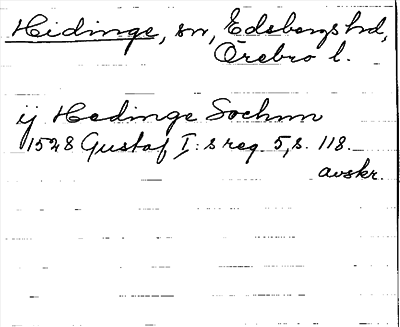 Hidinge, sn, Edsbergs hd,
Örebro l.
ij Hedinge Sochnn
1528 Gustaf I:s reg. 5, s. 118.
avskr.